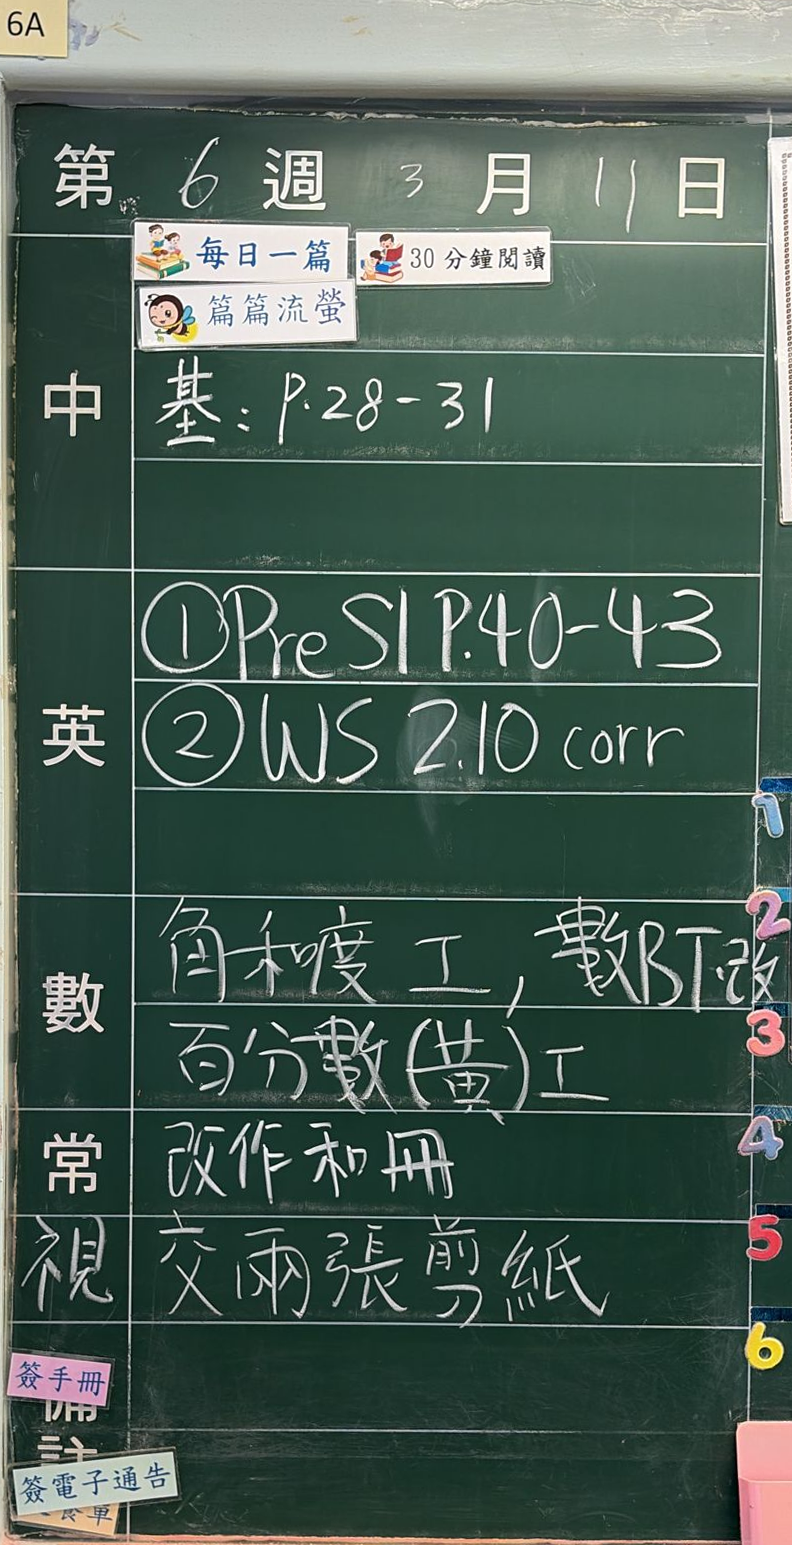 6A
第 6 週 3 月 11 日
每日一篇 30 分鐘閱讀
篇篇流螢
中
基：P.28-31
英
①Pre S1 P.40-43
②WS 2.10 corr
數
角和度 工，數BT改
百分數(黃)工
常 改作和冊
視 交兩張剪紙
簽手冊
備註
簽電子通告
1
2
3
4
5
6